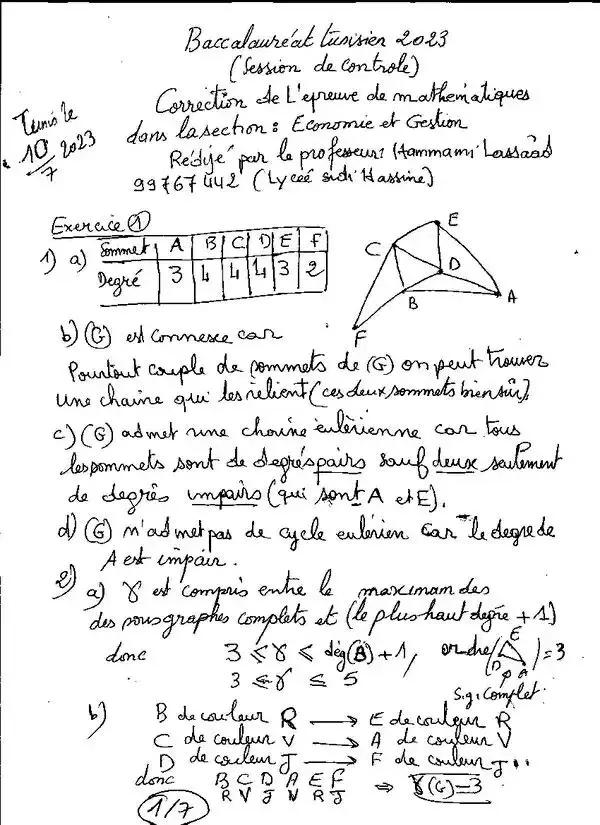 Baccalauréat tunisien 2023
(Session de controle)
Correction de L'epreuve de mathématiques
Tunis le
10/7 2023
dans la section : Economie et Gestion
Redijé par le professeur : Hammami Lassaâd
99767442 (Lyceé sidi Hassine)
Exercice ①
1) a) Sommet A B C D E F
Degré 3 4 4 4 3 2
E
C
D
B
A
F
b) (G) est connexe car
Pourtout couple de sommets de (G) on peut trouver
une chaine qui les relient (ces deux sommets bien sûr).
c) (G) admet une chaine eulèrienne car tous
les sommets sont de degrés pairs sauf deux seulement
de degrès impairs (qui sont A et E).
d) (G) n'admet pas de cycle eulérien car le degre de
A est impair.
2) a) γ est compris entre le maximam des
des sous graphes complets et (le plus haut degre + 1)
donc 3 ≤ γ ≤ dèg(B) + 1, ordre( ) = 3
E
D A
3 ≤ γ ≤ 5
s.g. complet
b) B de couleur R → E de couleur R
C de couleur V → A de couleur V
D de couleur J → F de couleur J
donc B C D A E F ⇒ γ(G) = 3
R V J V R J
1/7